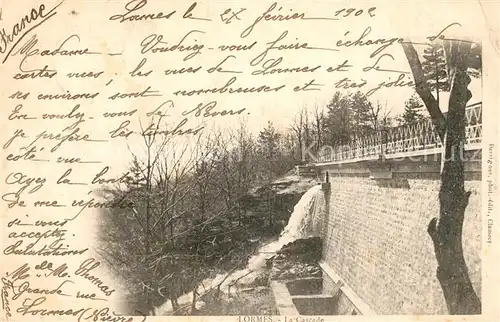 France
Lormes le 27 février 1902
Madame Voudriez-vous faire échange
cartes vues, les vues de Lormes et de
ses environs sont nombreuses et très jolies.
En voulez-vous de Nevers.
Je préfère les timbres
côté vue
Ayez la bonté
de me répondre
si vous
acceptez.
Salutations
M. Thomas
Grande rue
Lormes (Nièvre)
France
LORMES. - La Cascade